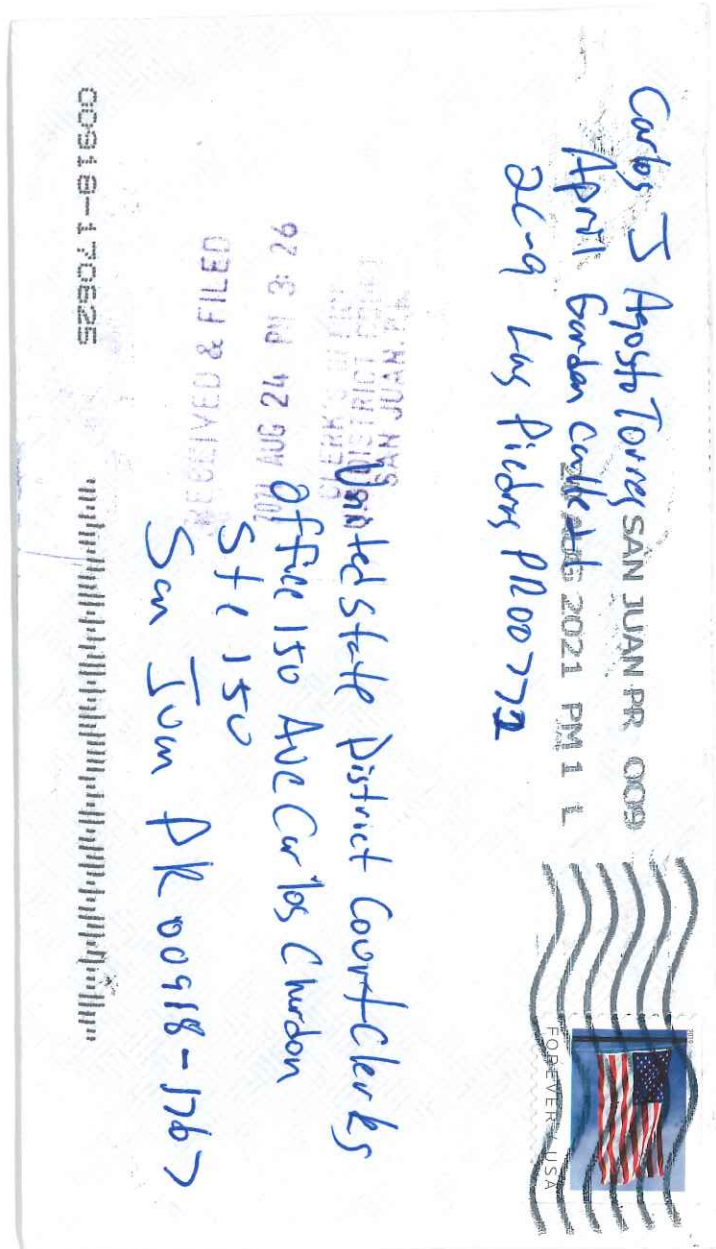 Carlos J Agosto Torres
April Gardan calle
2C-9 Las Piedras PR 00772
SAN JUAN PR 009
AUG 2021 PM 1 L
FOREVER / USA
RECEIVED & FILED
2021 AUG 24 PM 3: 26
CLERK'S OFFICE
DISTRICT COURT
SAN JUAN, P.R.
United State District Court Clerks
Office 150 Ave Carlos Chardon
Ste 150
San Juan PR 00918-1767
00918-170625